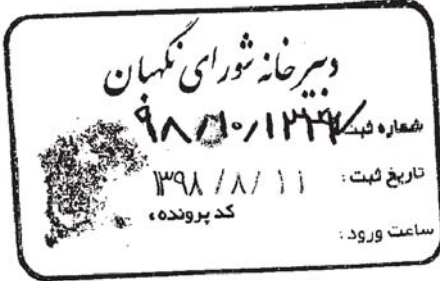 دبیرخانه شورای نگهبان
شماره ثبت:
تاریخ ثبت: ۱۳۹۸/۸/۱۱
کد پرونده،
ساعت ورود: